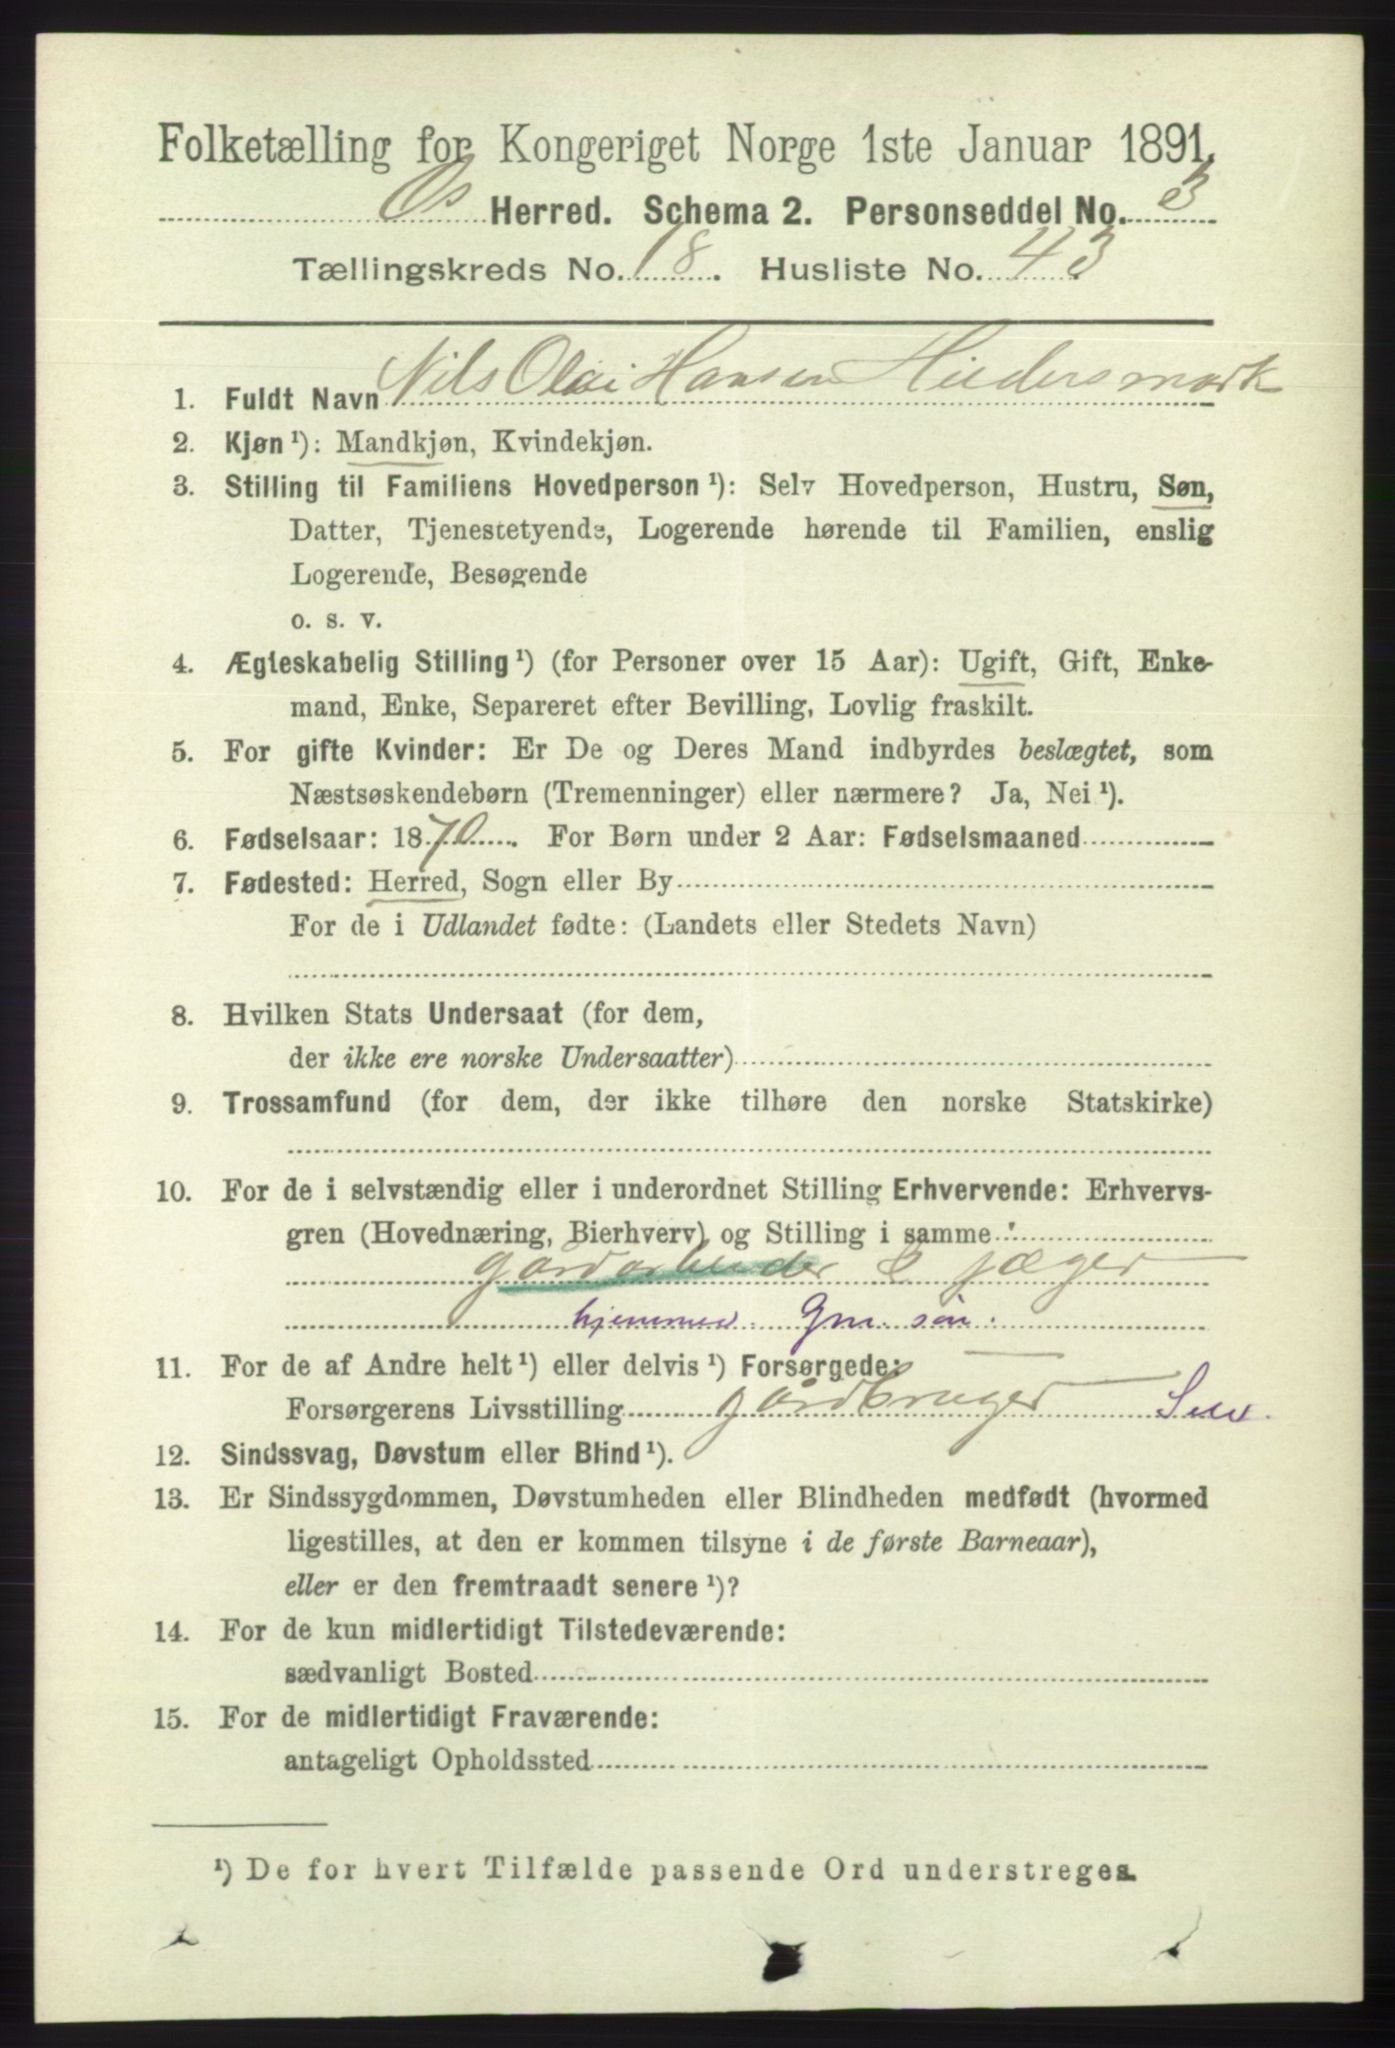 Folketælling for Kongeriget Norge 1ste Januar 1891.
Os Herred. Schema 2. Personseddel No. 3
Tællingskreds No. 18. Husliste No. 43
1. Fuldt Navn Nils Olai Hansen
2. Kjøn ¹): Mandkjøn, Kvindekjøn.
3. Stilling til Familiens Hovedperson ¹): Selv Hovedperson, Hustru, Søn,
Datter, Tjenestetyende, Logerende hørende til Familien, enslig
Logerende, Besøgende
o. s. v.
4. Ægteskabelig Stilling ¹) (for Personer over 15 Aar): Ugift, Gift, Enke-
mand, Enke, Separeret efter Bevilling, Lovlig fraskilt.
5. For gifte Kvinder: Er De og Deres Mand indbyrdes beslægtet, som
Næstsøskendebørn (Tremenninger) eller nærmere? Ja, Nei ¹).
6. Fødselsaar: 1870. For Børn under 2 Aar: Fødselsmaaned
7. Fødested: Herred, Sogn eller By
For de i Udlandet fødte: (Landets eller Stedets Navn)
8. Hvilken Stats Undersaat (for dem,
der ikke ere norske Undersaatter)
9. Trossamfund (for dem, der ikke tilhøre den norske Statskirke)
10. For de i selvstændig eller i underordnet Stilling Erhvervende: Erhvervs-
gren (Hovednæring, Bierhverv) og Stilling i samme :
gårdarbeider & jæger
hjemmev. Gm. søn.
11. For de af Andre helt ¹) eller delvis ¹) Forsørgede:
Forsørgerens Livsstilling gårdbruger
12. Sindssvag, Døvstum eller Blind ¹).
13. Er Sindssygdommen, Døvstumheden eller Blindheden medfødt (hvormed
ligestilles, at den er kommen tilsyne i de første Barneaar),
eller er den fremtraadt senere ¹)?
14. For de kun midlertidigt Tilstedeværende:
sædvanligt Bosted
15. For de midlertidigt Fraværende:
antageligt Opholdssted
¹) De for hvert Tilfælde passende Ord understreges.